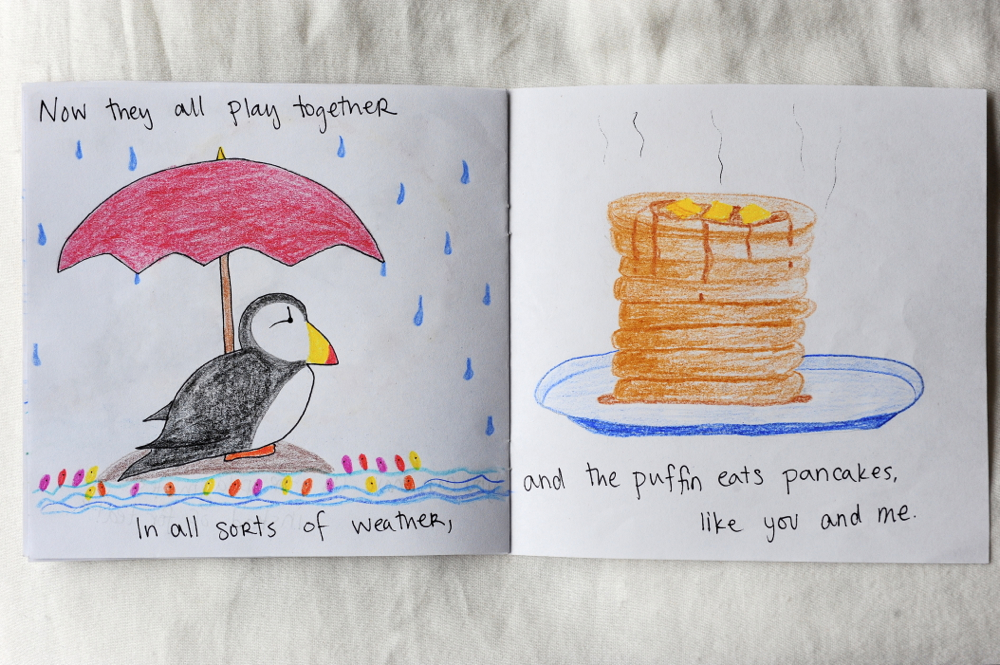 Now they all play together
In all sorts of weather,
and the puffin eats pancakes,
like you and me.